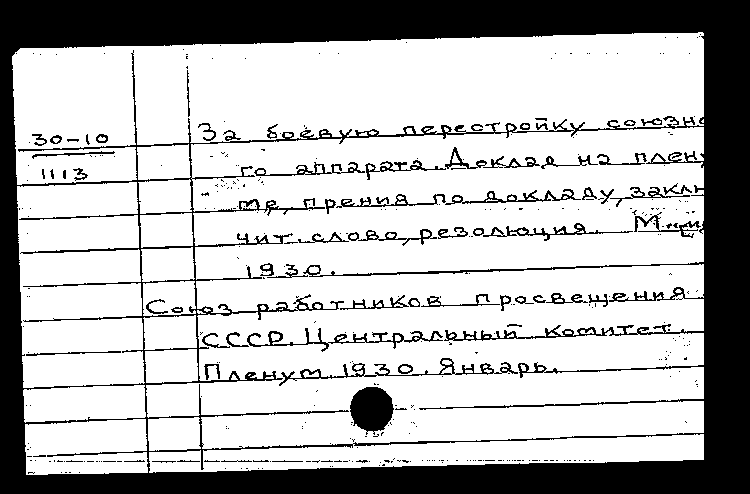 30-10
1113
За боевую перестройку союзно
го аппарата. Доклад на плену
ме, прения по докладу, заклю
чит. слово, резолюция.
1930.
Союз работников просвещения
СССР. Центральный комитет.
Пленум 1930. Январь.